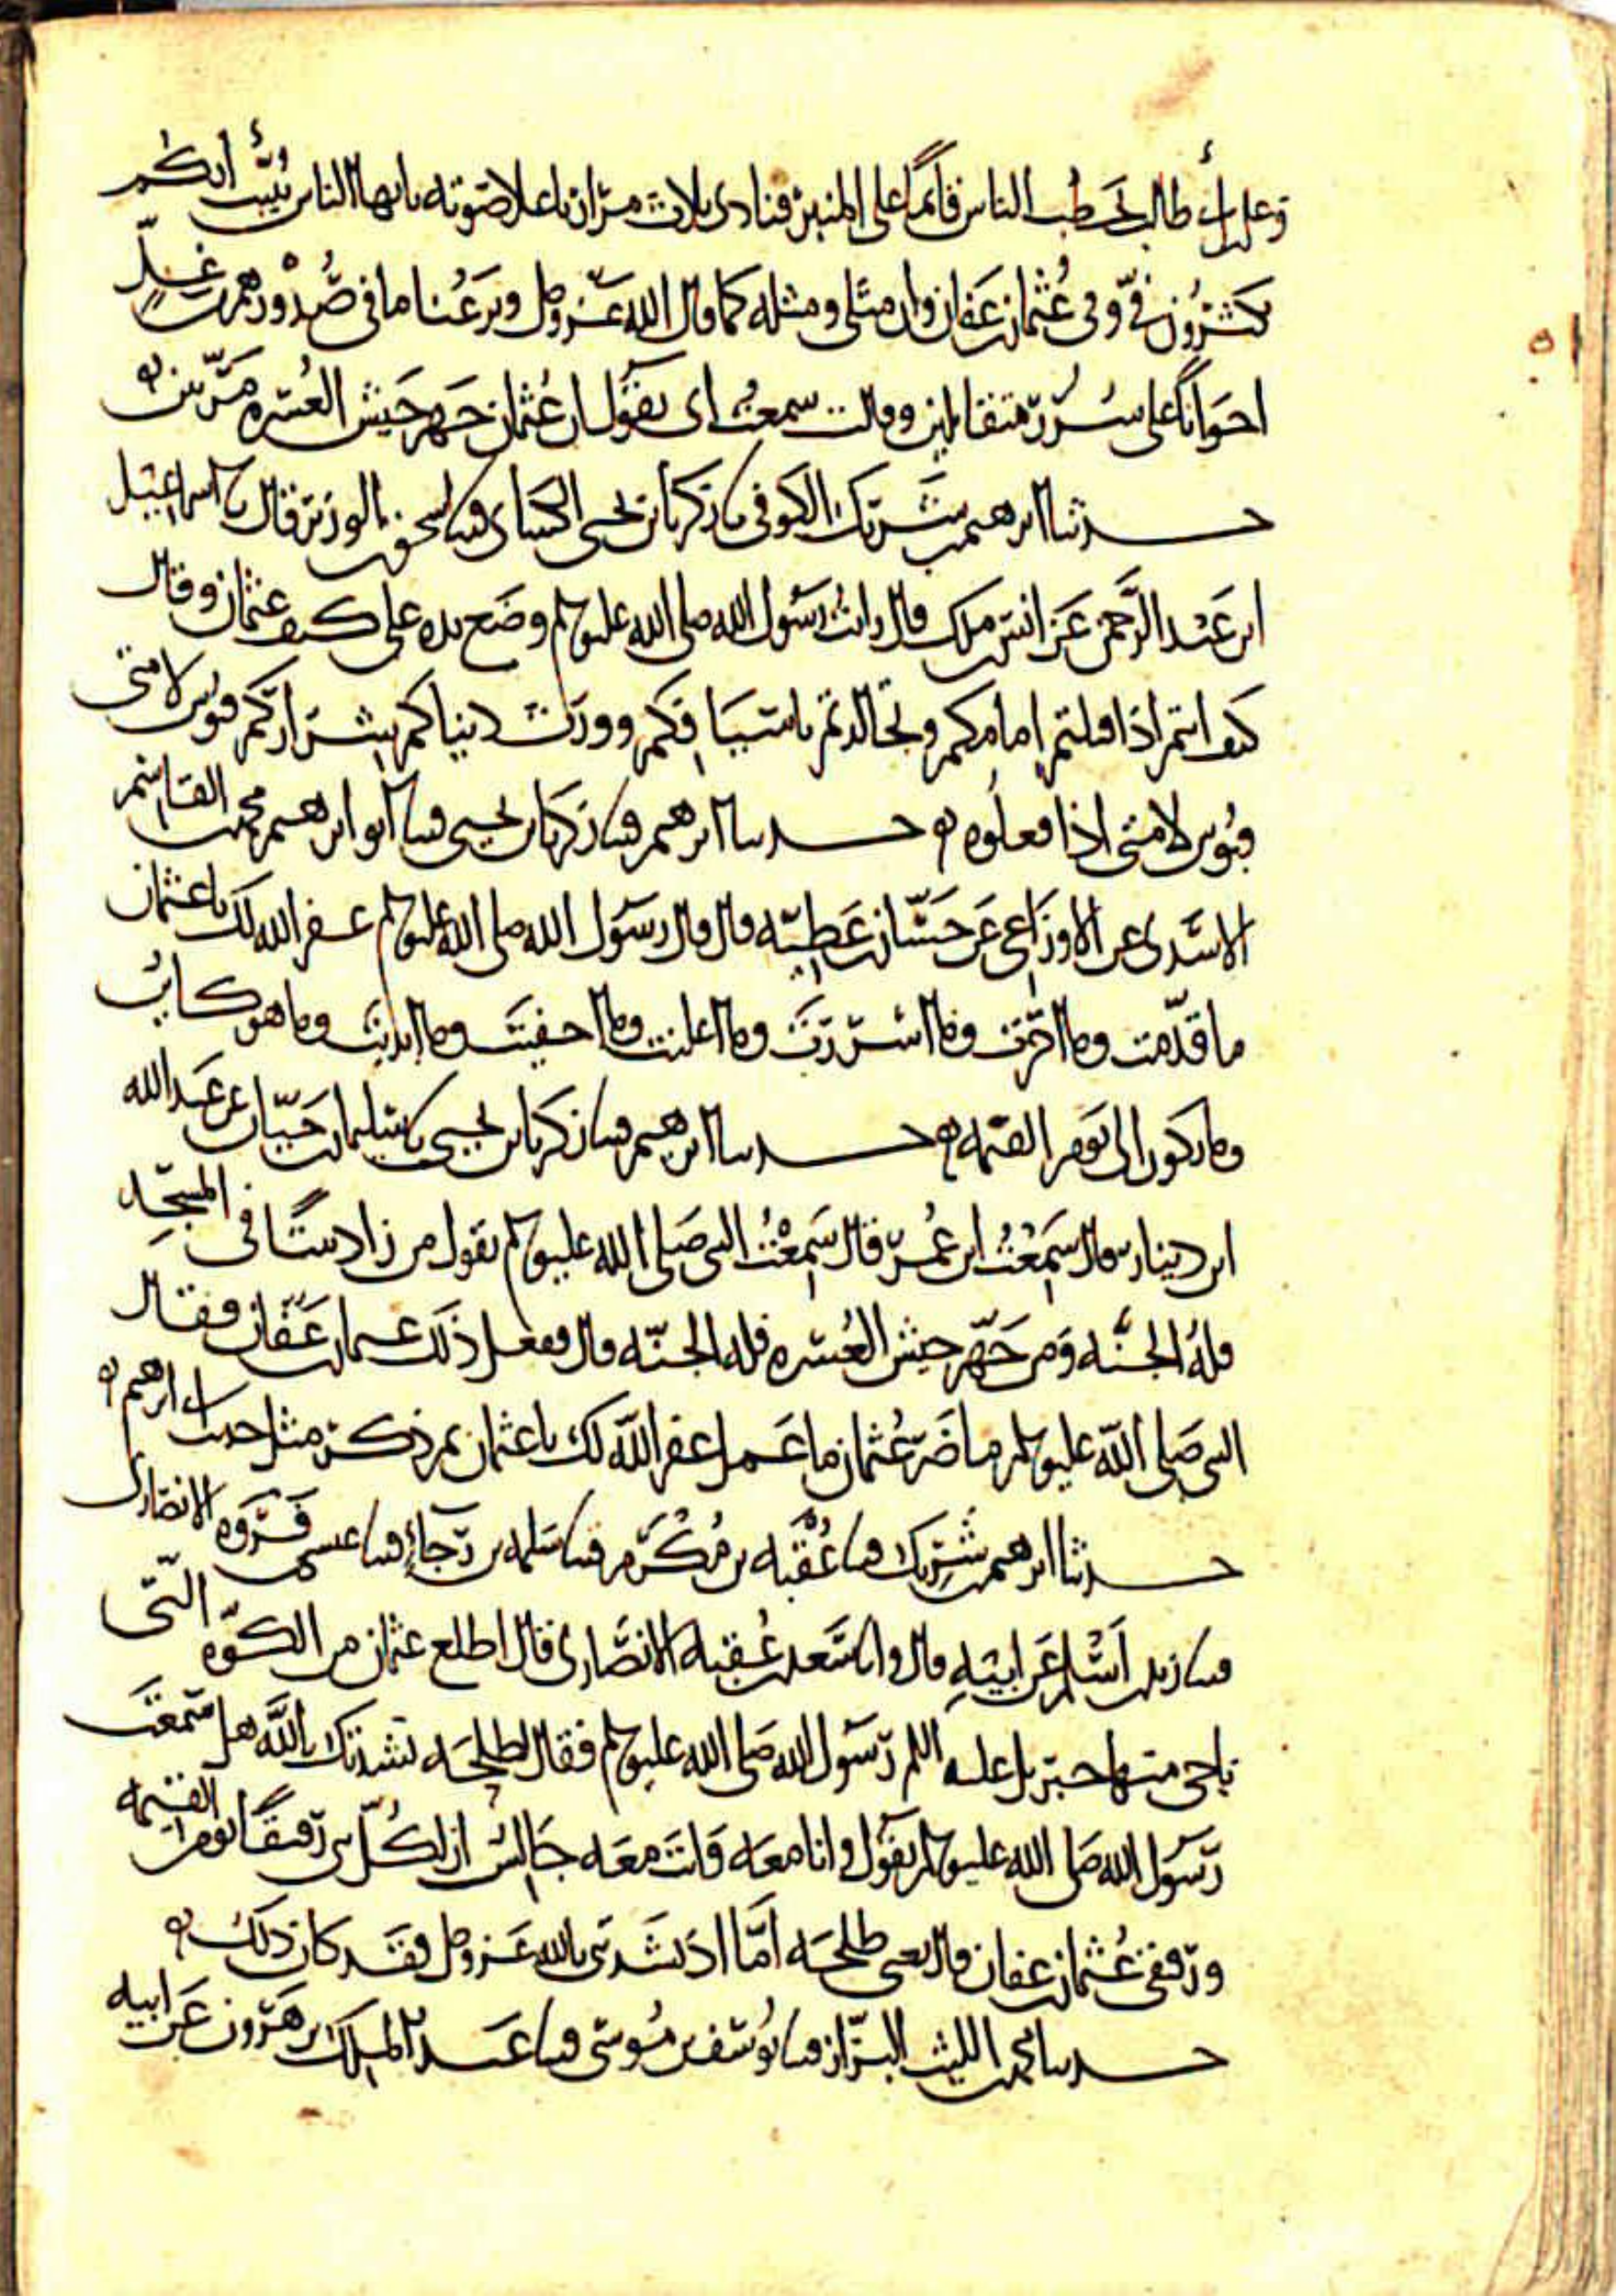 وعلي بن أبي طالب يخطب الناس قائما على المنبر فنادى ثلاث مرات باعلا صوته يايها الناس نبيت أنكم
تكثرون في وفي عثمان بن عفان وان مثلي ومثله كما قال الله عز وجل ونزعنا ما في صدورهم من غل
اخوانا على سرر متقابلين وقالت سمعت ابي يقول ان عثمان جهز جيش العسره مرتين
حدثنا ابرهيم بن شريك الكوفي نا زكريا بن يحيى الكسائي قثنا اسحق بن الوزير قال نا اسماعيل
ابن عبد الرحمن عن انس بن ملك قال رايت رسول الله صلى الله عليه وسلم وضع يده على كتف عثمان وقال
كيف انتم اذا قتلتم امامكم وتجالدتم باسيافكم وورث دنياكم شراركم فويس لامتي
فبؤس لامتي اذا فعلوه حدثنا ابرهيم قثنا زكريا بن يحيى قثنا ابو ابرهيم محمد بن القاسم
الاسدي عن الاوزاعي عن حسان بن عطيه قال قال رسول الله صلى الله عليه وسلم غفر الله لك يا عثمان
ما قدمت وما اخرت وما اسررت وما اعلنت وما اخفيت وما ابديت وما هو كاين
وما يكون الى يوم القيمه حدثنا ابرهيم قثنا زكريا بن يحيى نا سليمان بن حيان عن عبد الله
ابن دينار قال سمعت ابن عمر قال سمعت النبي صلى الله عليه وسلم يقول من زاد بيتا في المسجد
فله الجنه ومن جهز جيش العسره فله الجنه قال ففعل ذلك عثمان بن عفان فقال
النبي صلى الله عليه وسلم ما ضر عثمان ما عمل غفر الله لك يا عثمان ثم ذكر مثل حديث ابرهيم
حدثنا ابرهيم بن شريك قثنا عقبه بن مكرم قثنا سلمه بن رجاء قثنا عيسى بن فروه الانصاري
قثنا زيد بن اسلم عن ابيه قال وانا سعد بن عقبه الانصاري قال اطلع عثمان من الكوه التي
ناجى منها جبريل عليه السلم رسول الله صلى الله عليه وسلم فقال لطلحه نشدتك بالله هل سمعت
رسول الله صلى الله عليه وسلم يقول وانا معه وانت معه جالس ان لكل نبي رفيقا يوم القيمه
ورفيقي عثمان بن عفان قال يعني طلحه اما اذ نشدتني بالله عز وجل فقد كان ذلك
حدثنا محمد بن الليث البزاز قثنا يوسف بن موسى قثنا عبد الملك بن هرون عن ابيه